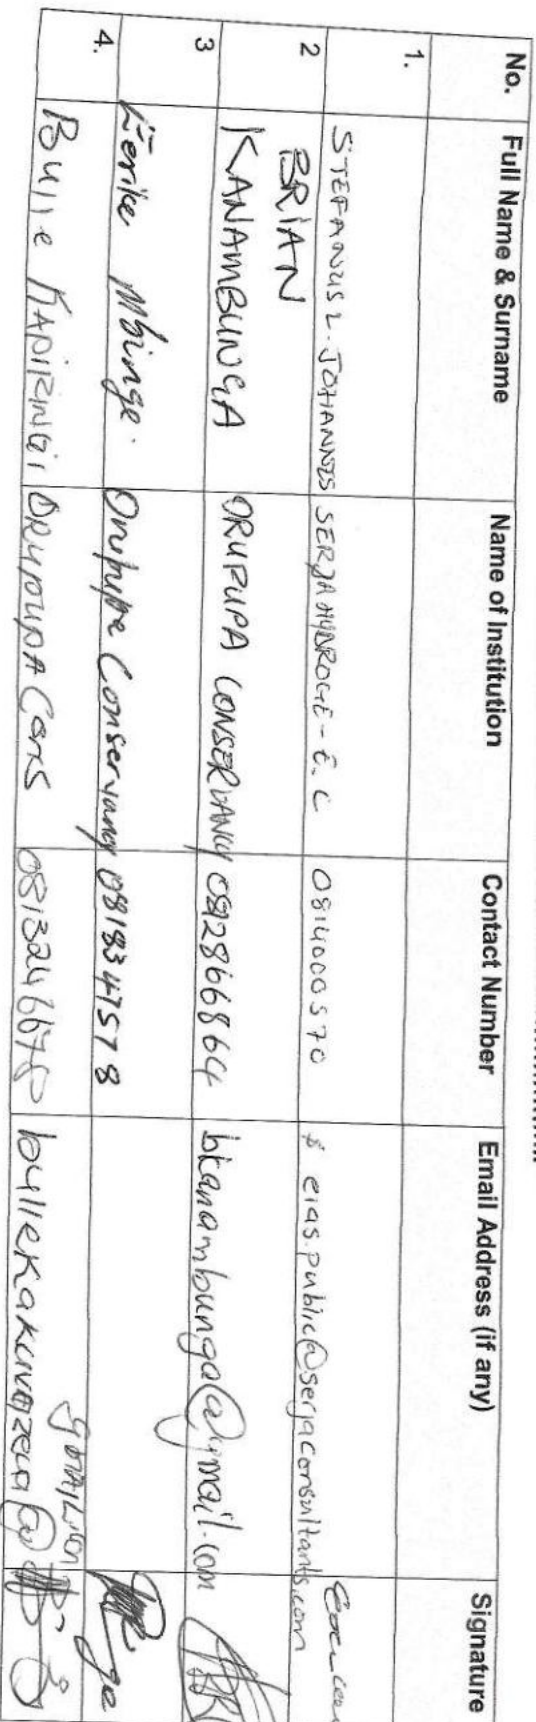 No. Full Name & Surname Name of Institution Contact Number Email Address (if any) Signature
1. STEFANUS L. JOHANNES SERJA HYDROGE-E.C 0814000570 eias.public@serjaconsultants.com
2 BRIAN
KANAMBUNGA ORUPUPA CONSERVANCY 0812866864 bkanambunga@gmail.com
3 Mbinge Orupupa Conservancy 0818347578
4. Bullie KAPIRINGI ORUPUPA Cons 081324 bulliekakuvazeua@
gmail.com